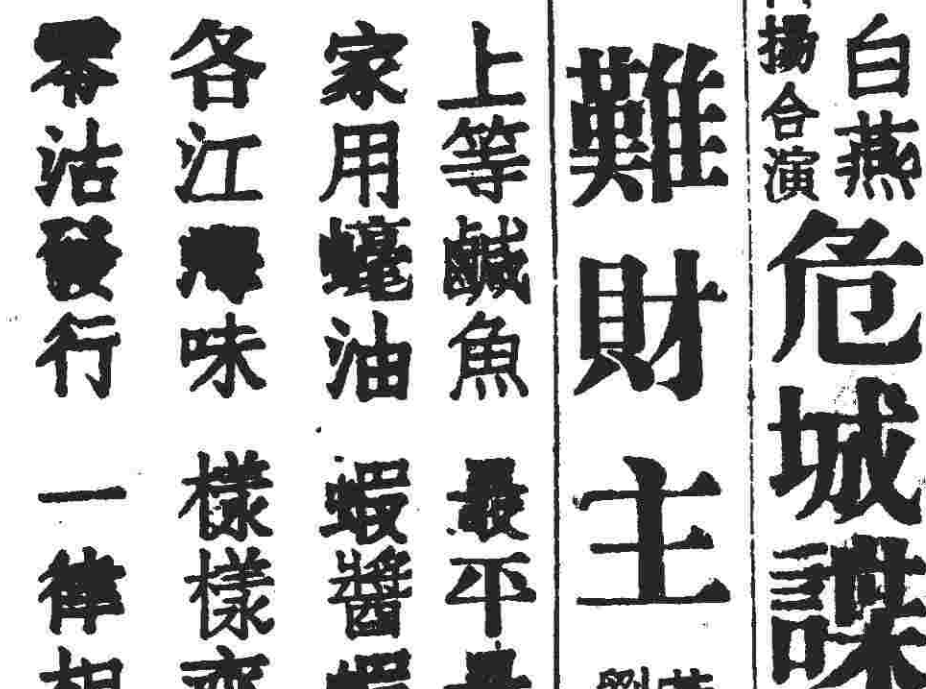 白燕
揚合演
危城諜
難財主
上等鹹魚 最平
家用蠔油 蝦醬
各江海味 樣樣齊
零沽發行 一律相